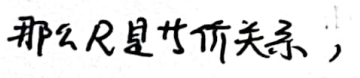 那么R是等价关系，